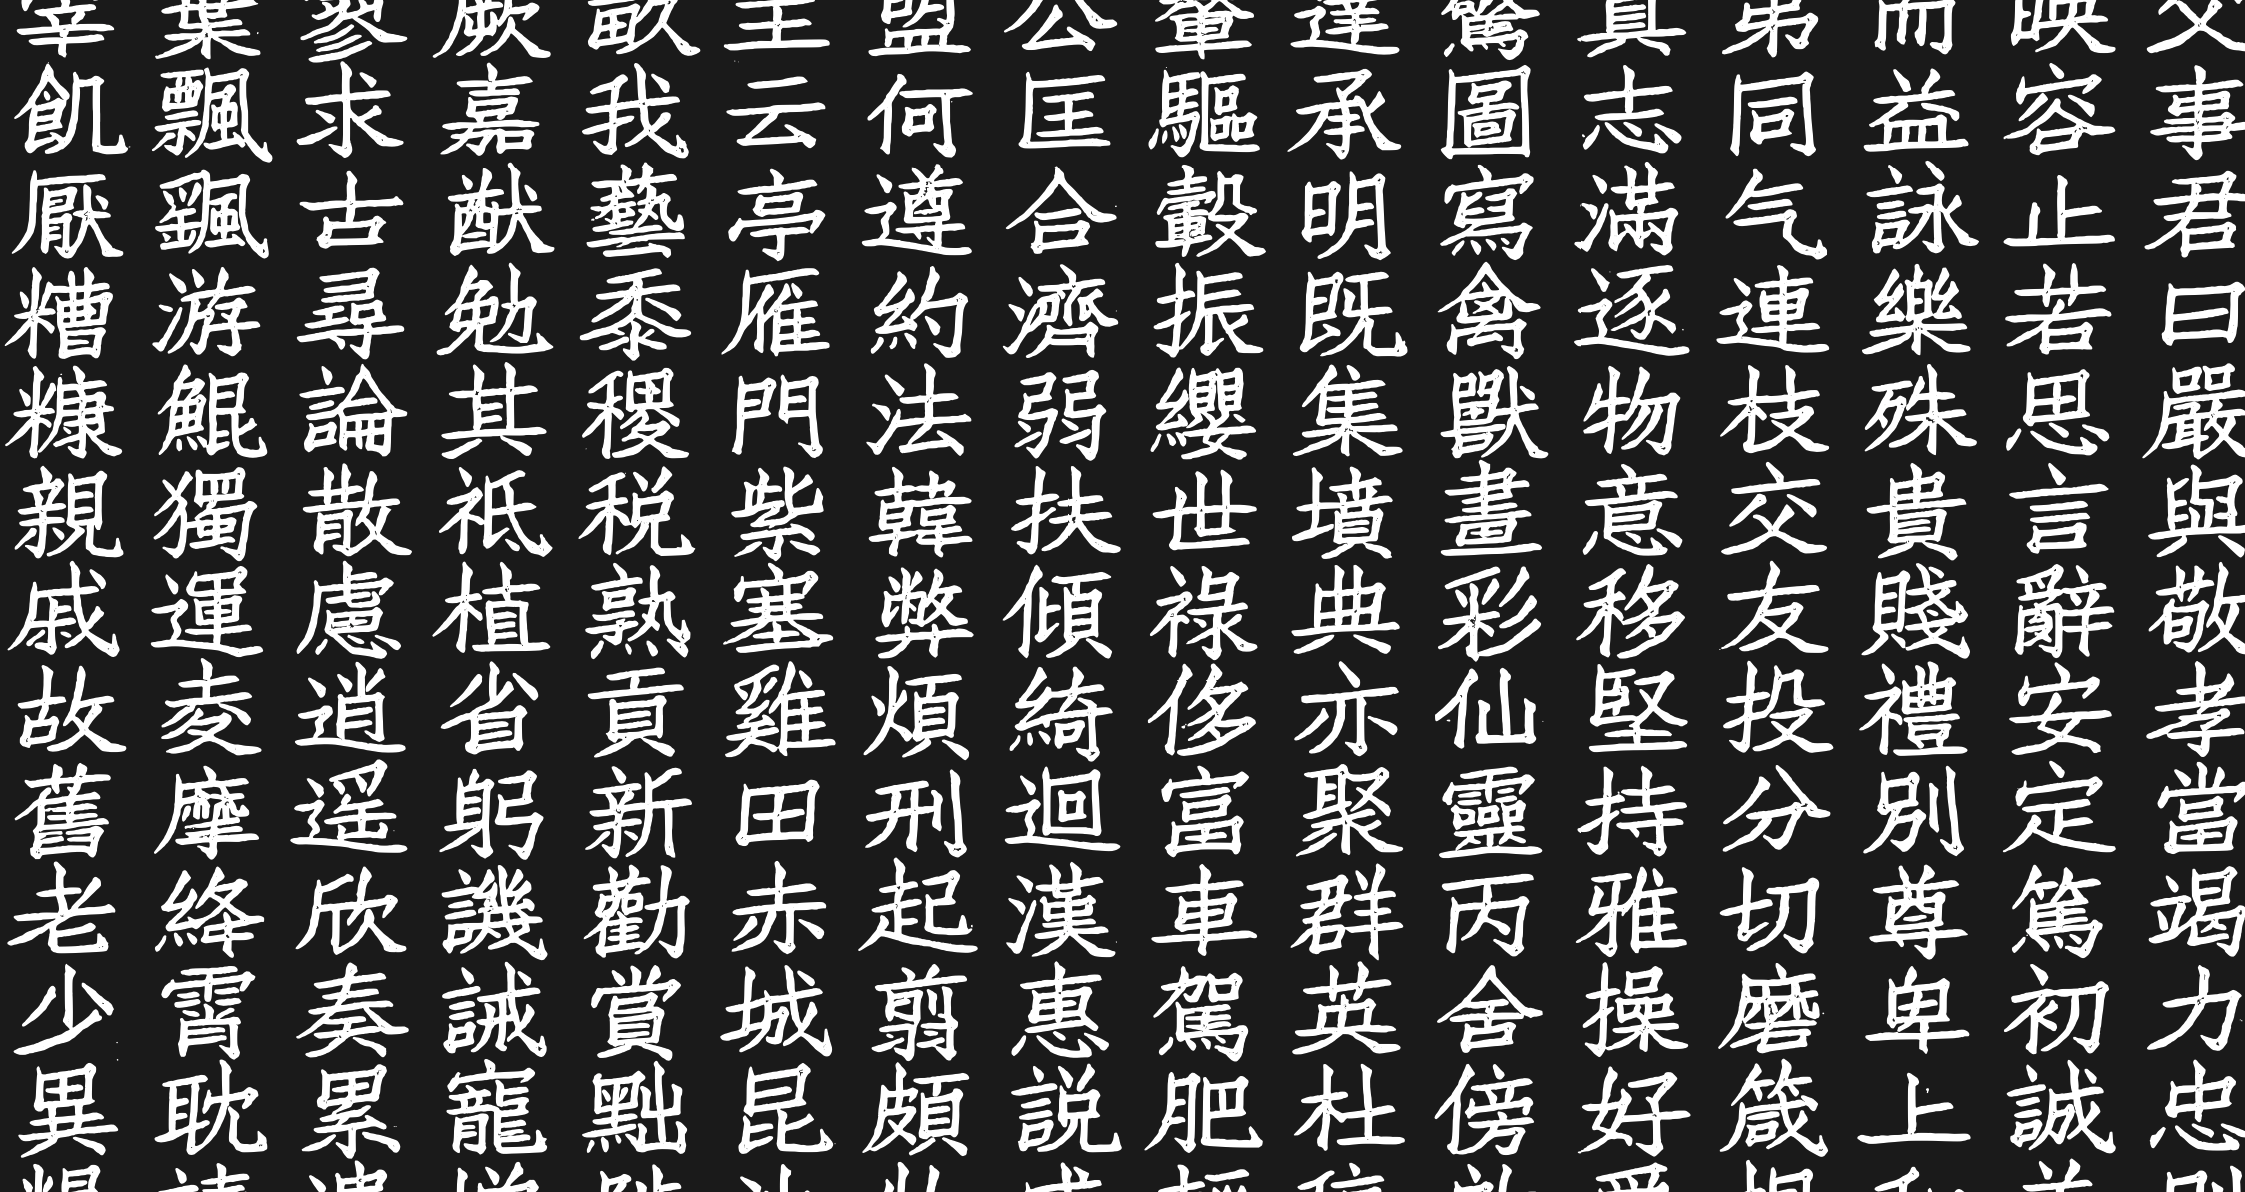 父事君曰嚴與敬孝當竭力忠
映容止若思言辭安定篤初誠
而益詠樂殊貴賤禮別尊卑上
弟同气連枝交友投分切磨箴
真志滿逐物意移堅持雅操好
驚圖寫禽獸畫彩仙靈丙舍傍
達承明既集墳典亦聚群英杜
輦驅轂振纓世祿侈富車駕肥
公匡合濟弱扶傾綺迴漢惠説
盟何遵約法韓弊煩刑起翦頗
主云亭雁門紫塞雞田赤城昆
畝我藝黍稷税熟貢新勸賞黜
厥嘉猷勉其祗植省躬譏誡寵
寥求古尋論散慮逍遥欣奏累
葉飄颻游鯤獨運夌摩絳霄耽
宰飢厭糟糠親戚故舊老少異